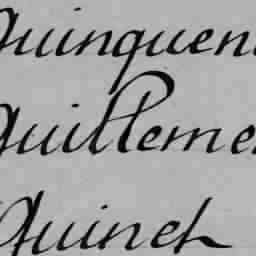 Quinquen
Guilleme
Quinet